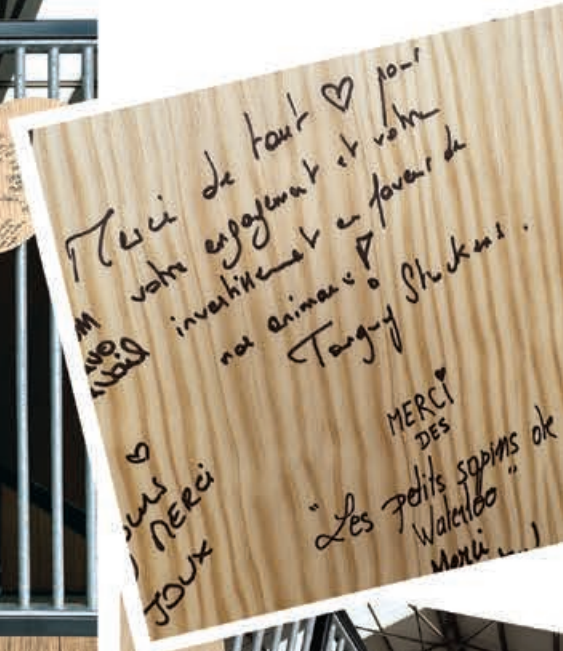 Merci de tout ♡ pour
votre engagement et votre
investissement en faveur de
nos animaux !
Tanguy Stuckens.
MERCI
DES
"Les petits sapins de
Waterloo"
Merci
MERCI
JOUX